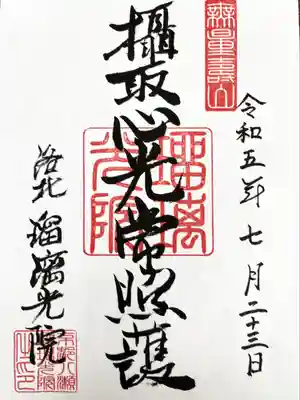 無量壽山
令和五年七月二十三日
攝取心光常照護
瑠璃光院
洛北 瑠璃光院